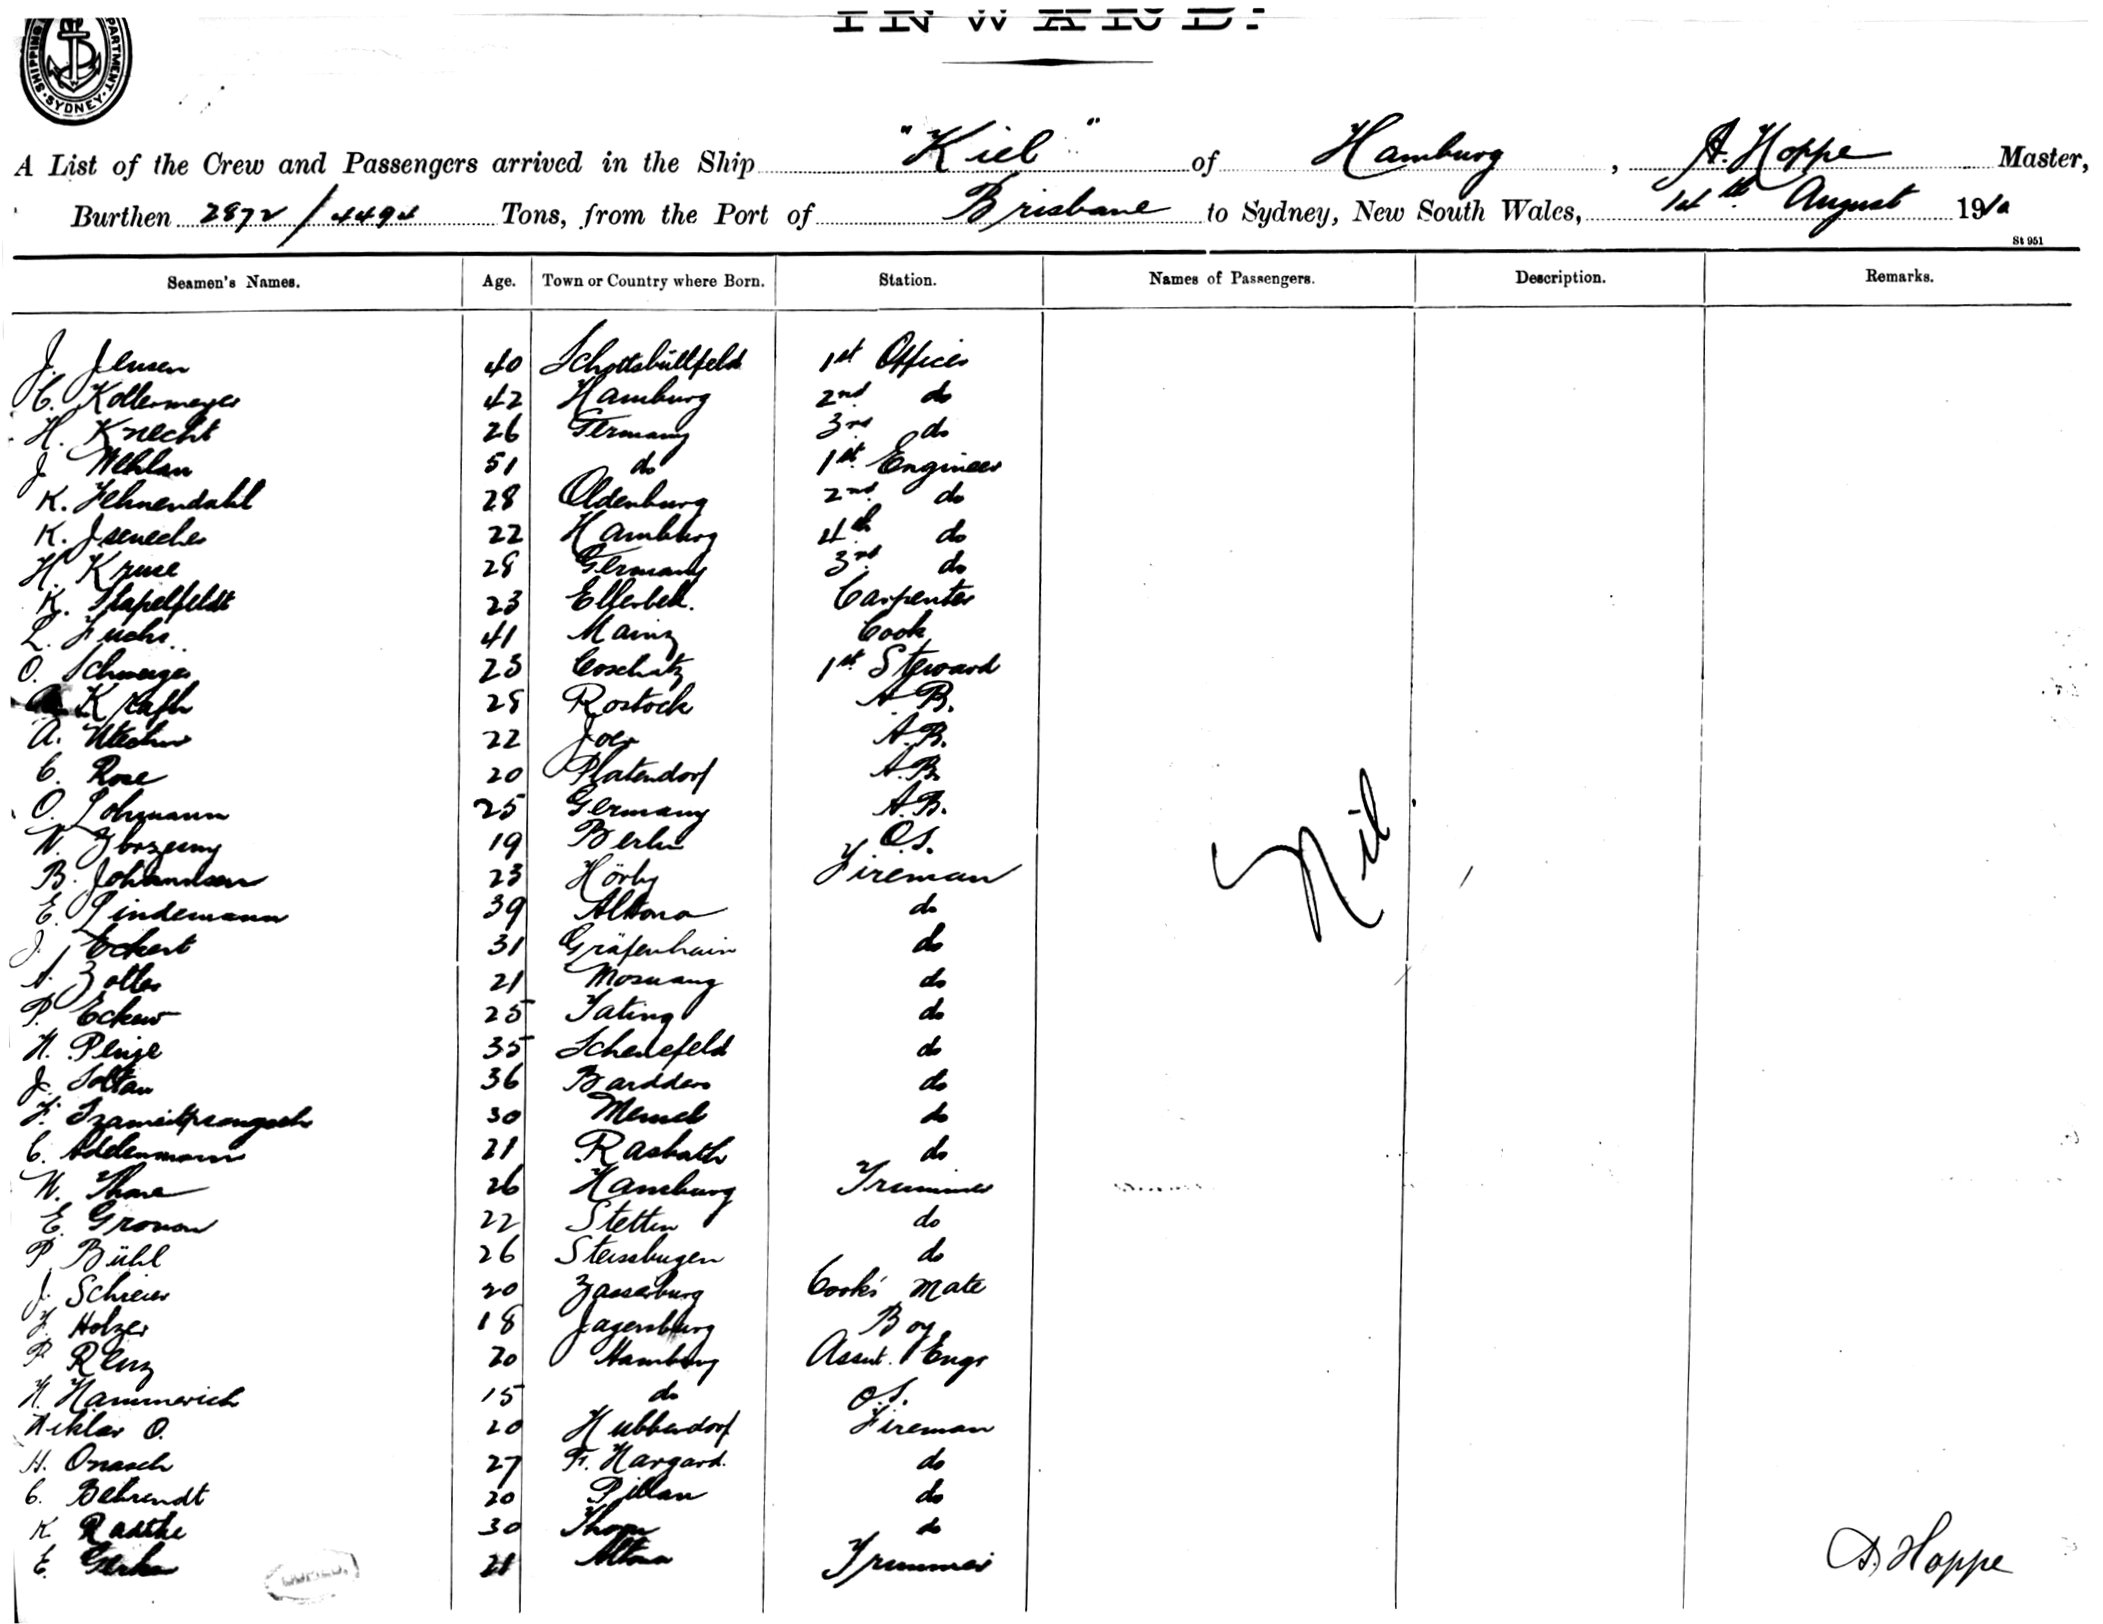 INWARD.
SHIPPING DEPARTMENT. SYDNEY
A List of the Crew and Passengers arrived in the Ship "Kiel" of Hamburg, A. Hoppe Master,
Burthen 2872/4494 Tons, from the Port of Brisbane to Sydney, New South Wales, 14th August 1910
St 951
Seamen's Names. Age. Town or Country where Born. Station. Names of Passengers. Description. Remarks.
J. Jensen 40 Schottsbüllfeld 1st Officer
C. Kollermeyer 42 Hamburg 2nd do
H. Knecht 26 Germany 3rd do
J. Wehlau 51 do 1st Engineer
K. Fehnendahl 28 Oldenburg 2nd do
K. 22 Hamburg 4th do
H. Kruse 28 Germany 3rd do
K. Stapelfeldt 23 Ellerbek. Carpenter
L. Fuchs. 41 Mainz Cook
O. Schweiger 23 Coschatz 1st Steward
Krafth 28 Rostock A.B.
A. 22 A.B.
C. Rose 20 Platendorf A.B.
O. Lohmann 25 Germany A.B.
W. Zbozeuny 19 Berlin O.S.
B. Johannsen 23 Hörby Fireman
E. Lindemann 39 Altona do
J. Eckert 31 Gräfenhain do
A. Zoller 21 Mosnang do
P. Eckew 25 Tating do
H. 35 Schenefeld do
J. Soltau 36 do
F. 30 Memel do
C. Adelenmann 21 do
W. 26 Hamburg Trimmer
E. Gronow 22 Stettin do
P. Bühl 26 do
J. Schreier 20 Cook's mate
F. Holzer 18 Jagersburg Boy
P. Renz 20 Hamburg Assnt. Engr
H. Hammerich 15 do O.S.
O. 20 Hubberdorf Fireman
H. Onasch 27 Fr. Nargard. do
C. Behrendt 20 Pillau do
K. Radtke 30 Thorn do
E. 21 Altona Trimmer
Nil
A. Hoppe